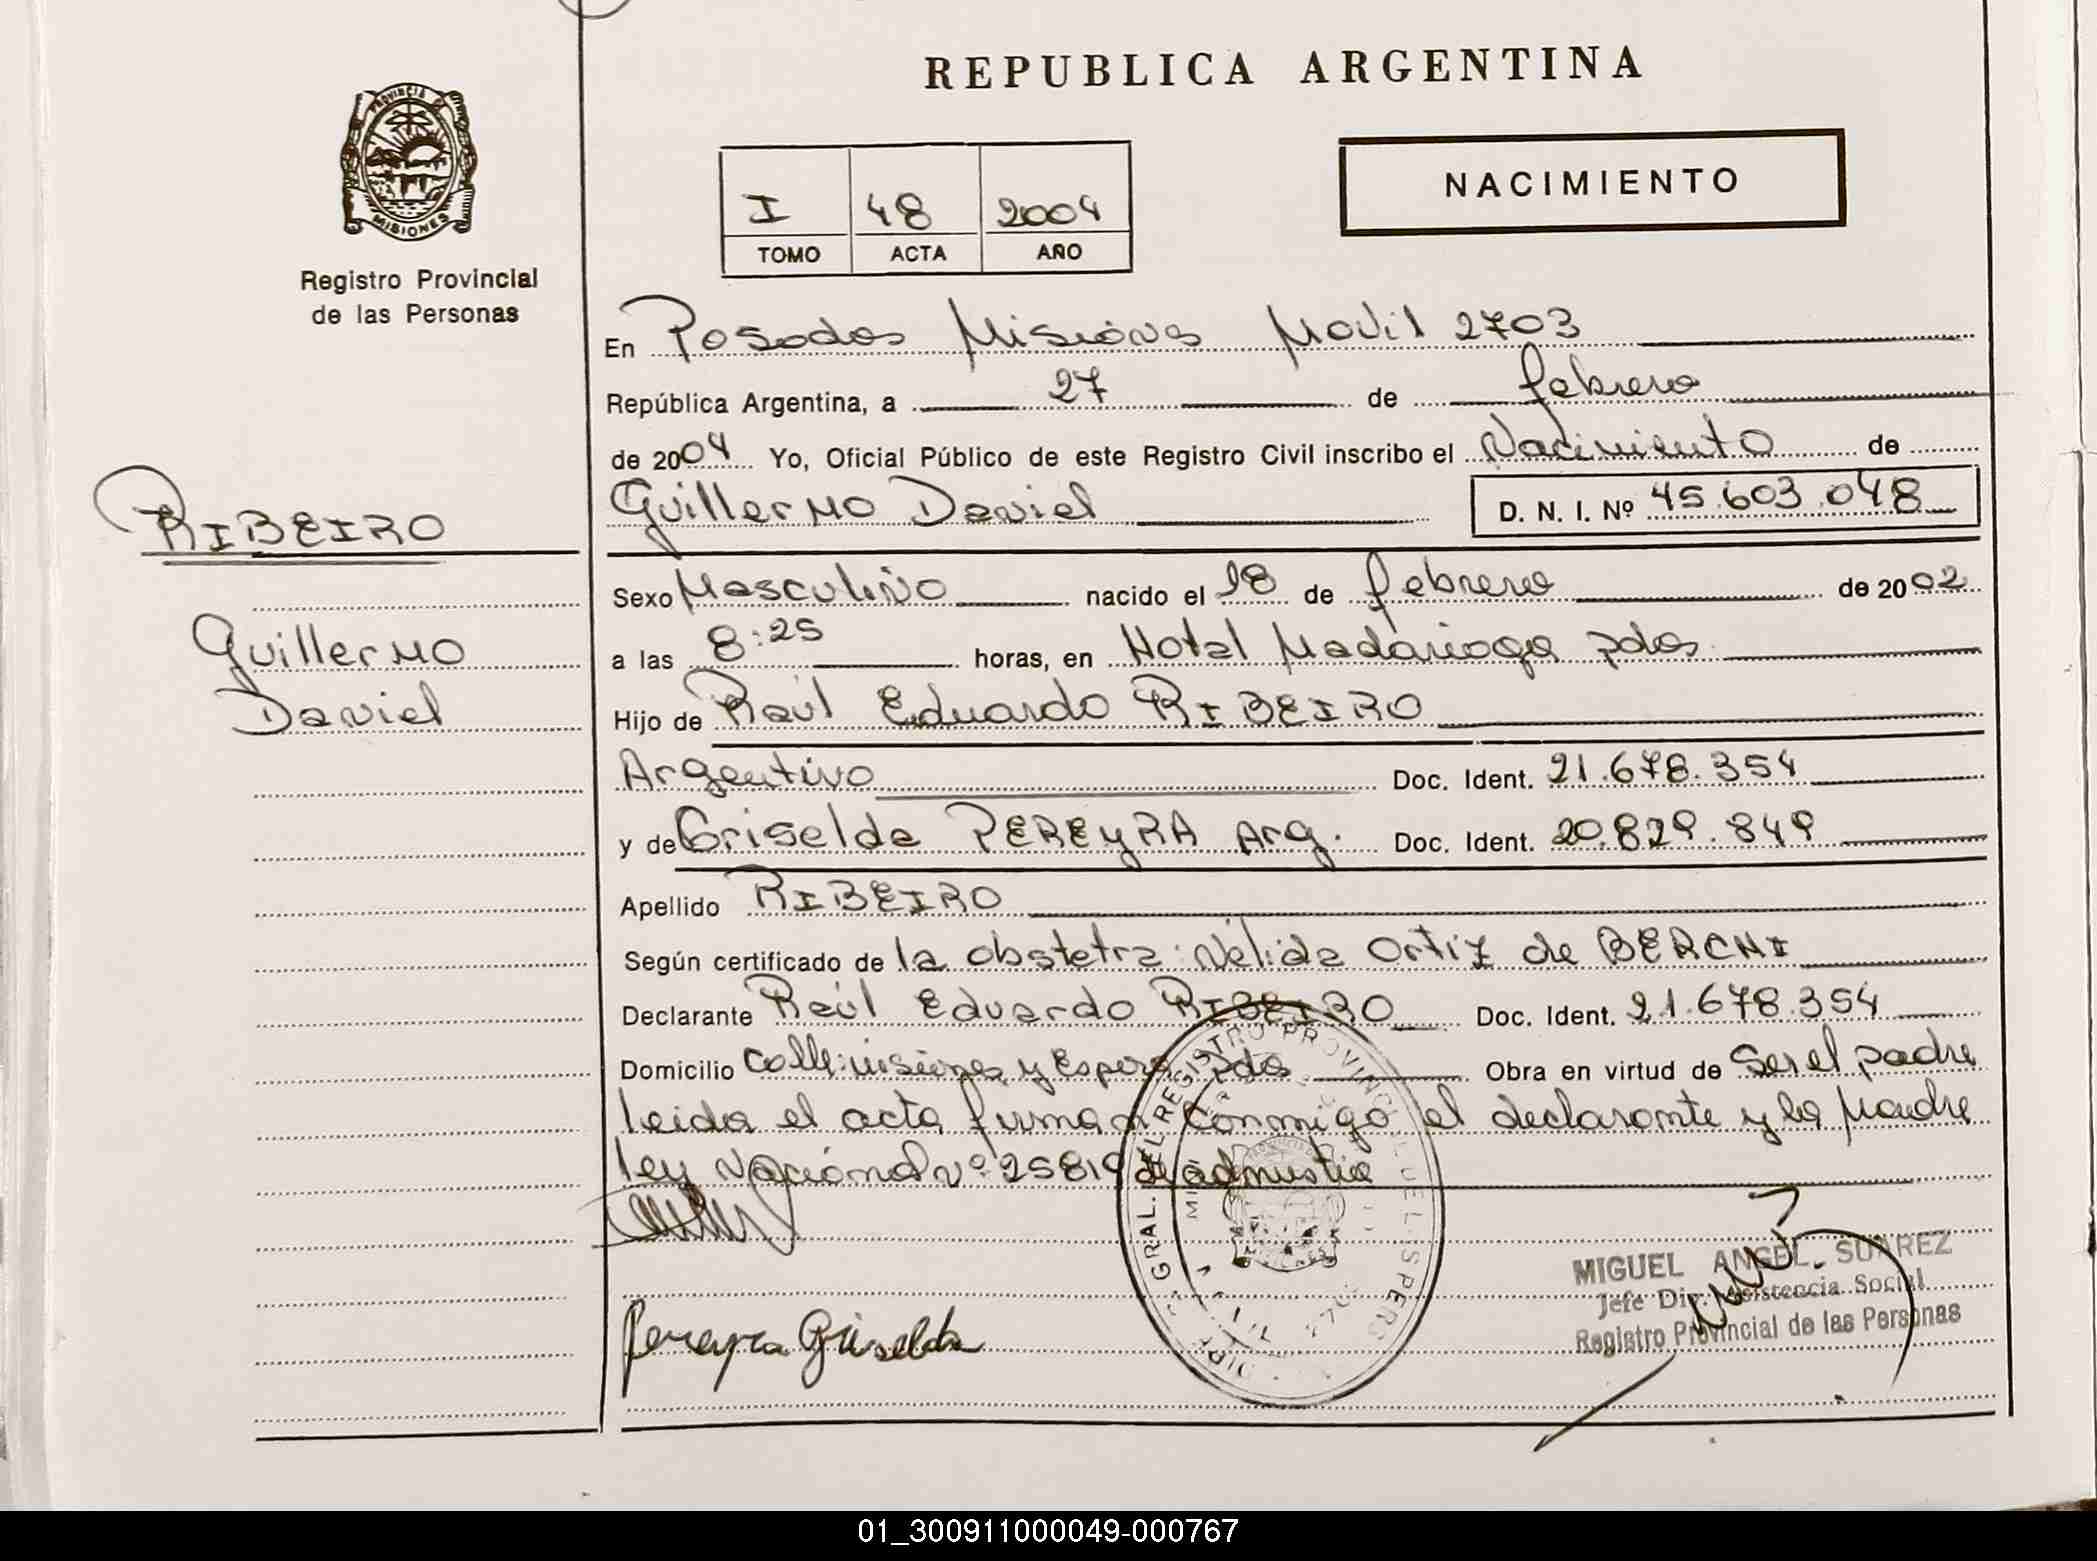 REPUBLICA ARGENTINA
PROVINCIA DE
MISIONES
Registro Provincial
de las Personas
I 48 2004
TOMO ACTA AÑO
NACIMIENTO
En Posadas Misiones Movil 2703
República Argentina, a 27 de febrero
de 2004 Yo, Oficial Público de este Registro Civil inscribo el Nacimiento de
Guillermo Daniel D. N. I. Nº 45.603.048
RIBEIRO
Guillermo
Daniel
Sexo Masculino nacido el 18 de febrero de 2002
a las 8:25 horas, en Hotal Madariaga pdas
Hijo de Raúl Eduardo RIBEIRO
Argentino Doc. Ident. 21.678.354
y de Griselda PEREYRA Arg. Doc. Ident. 20.829.849
Apellido RIBEIRO
Según certificado de la obstetra: Nélida Ortiz de
Declarante Raúl Eduardo RIBEIRO Doc. Ident. 21.678.354
Domicilio Calle: misiones y pdas Obra en virtud de Ser el padre
leida el acta firman conmigo el declarante y la Madre
ley Nacional Nº 25819 de admistia
Pereyra Griselda
MIGUEL ANGEL SUAREZ
Jefe Div. Asistencia Social
Registro Provincial de las Personas
01_300911000049-000767